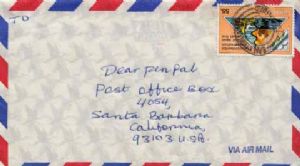 TO
Dear Pen Pal
Post Office Box
4054,
Santa Barbara
California,
93103 U.S.A.
VIA AIR MAIL